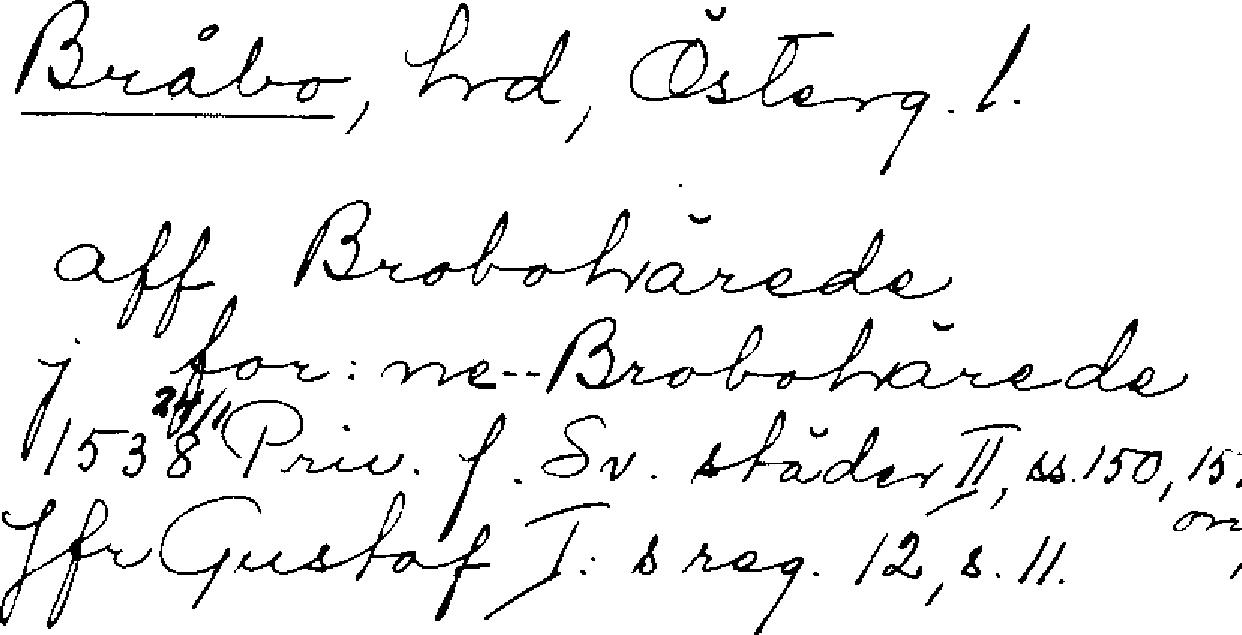 Bråbo, hrd, Österg. l.
aff Brobohärede
j for: ne-- Brobohärede
24/11
1538 Priv. f. Sv. städer II, ss. 150, 15
Jfr Gustaf I: s reg. 12, s. 11.